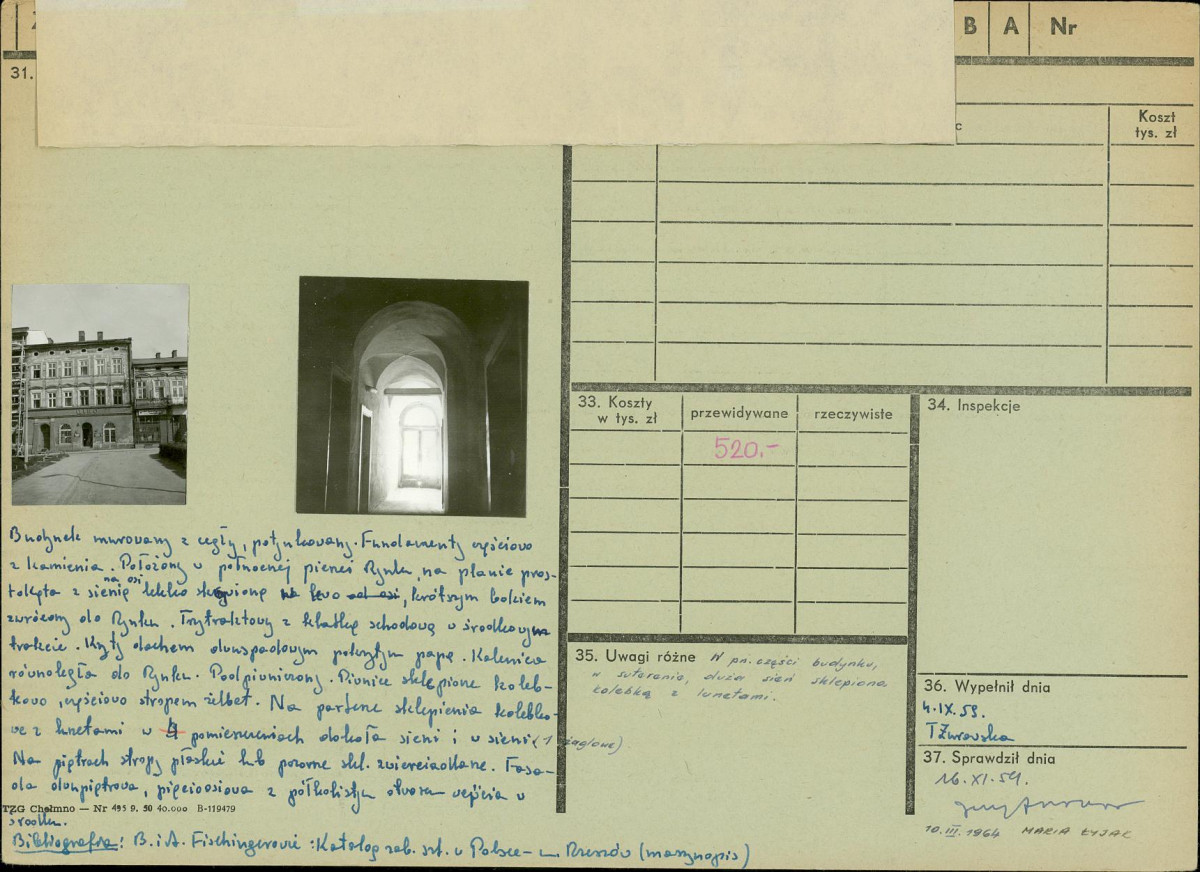 B A Nr
31.
Koszt
tys. zł
33. Koszty
w tys. zł
przewidywane
rzeczywiste
520.-
34. Inspekcje
Budynek murowany z cegły, potynkowany. Fundamenty częściowo
z kamienia. Położony w północnej pierzei Rynku, na planie pros-
tokąta z sienią na osi lekko skręcioną, krótszym bokiem
zwrócony do Rynku. Trytraktowy z klatką schodową w środkowym
trakcie. Kryty dachem dwuspadowym pokrytym papą. Kalenica
równoległa do Rynku. Podpiwniczony. Piwnice sklepione koleb-
kowo, częściowo stropem żelbet. Na parterze sklepienia kolebko-
we z lunetami w 4 pomieszczeniach dokoła sieni i w sieni (1 żaglowe).
Na piętrach stropy płaskie lub pozorne skl. zwierciadlane. Fasa-
da dwupiętrowa, pięcioosiowa z półkolistym otworem wejścia w
TZG Chełmno — Nr 495 9. 50 40.000 B-119479
środku.
Bibliografia: B. i A. Fischingerowie: Katalog zab. szt. w Polsce - m. Rzeszów (maszynopis)
35. Uwagi różne W pn. części budynku,
w suterenie, duża sień sklepiona
kolebką z lunetami.
36. Wypełnił dnia
4.IX.59.
TŻurawska
37. Sprawdził dnia
16.XI.59.
10.III.1964 MARIA ŁYJAK